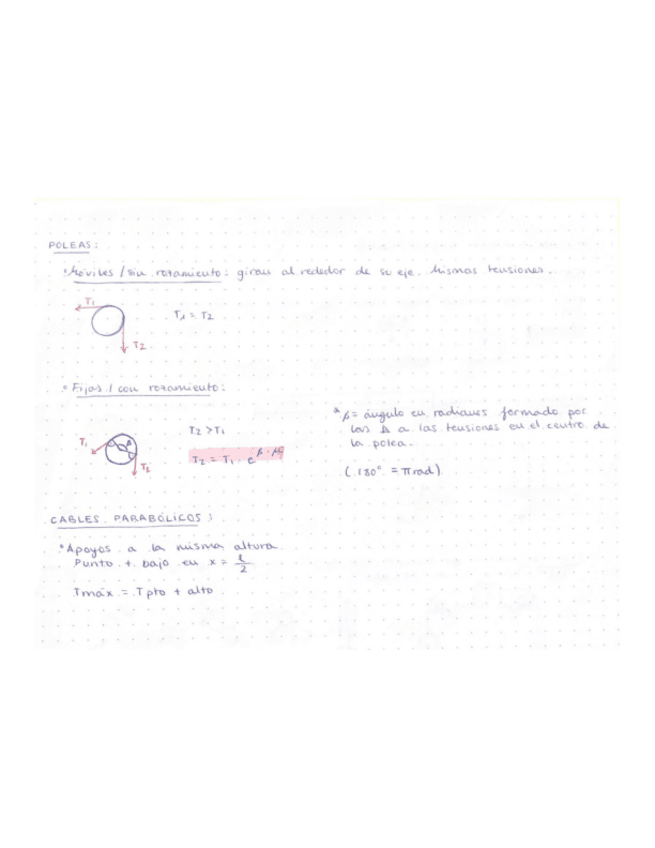 POLEAS:
• Móviles / sin rozamiento: giran al rededor de su eje. Mismas tensiones.
T₁
T₁ = T₂
T₂
• Fijas / con rozamiento:
T₂ > T₁
T₁ β T₂
T₂ = T₁ · e^β·μe
* β = ángulo en radianes formado por
las ⊥ a las tensiones en el centro de
la polea.
(180° = π rad)
CABLES PARABÓLICOS:
• Apoyos a la misma altura
Punto + bajo en x = l/2
Tmáx = Tpto + alto